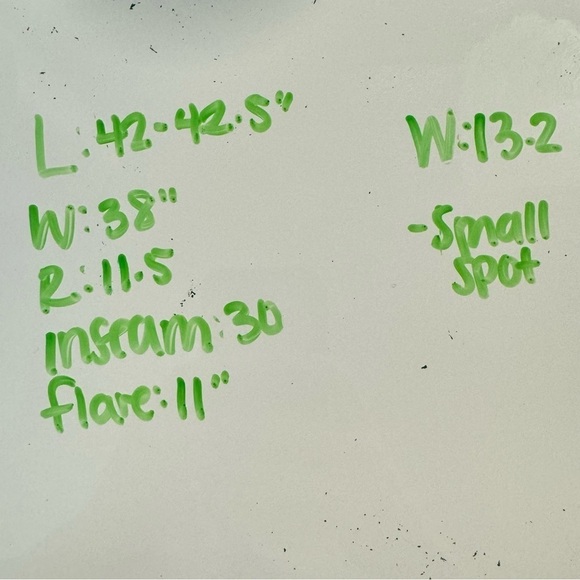 L: 42-42.5"
W: 38"
R: 11.5
inseam: 30
flare: 11"
W: 13.2
-Small
spot